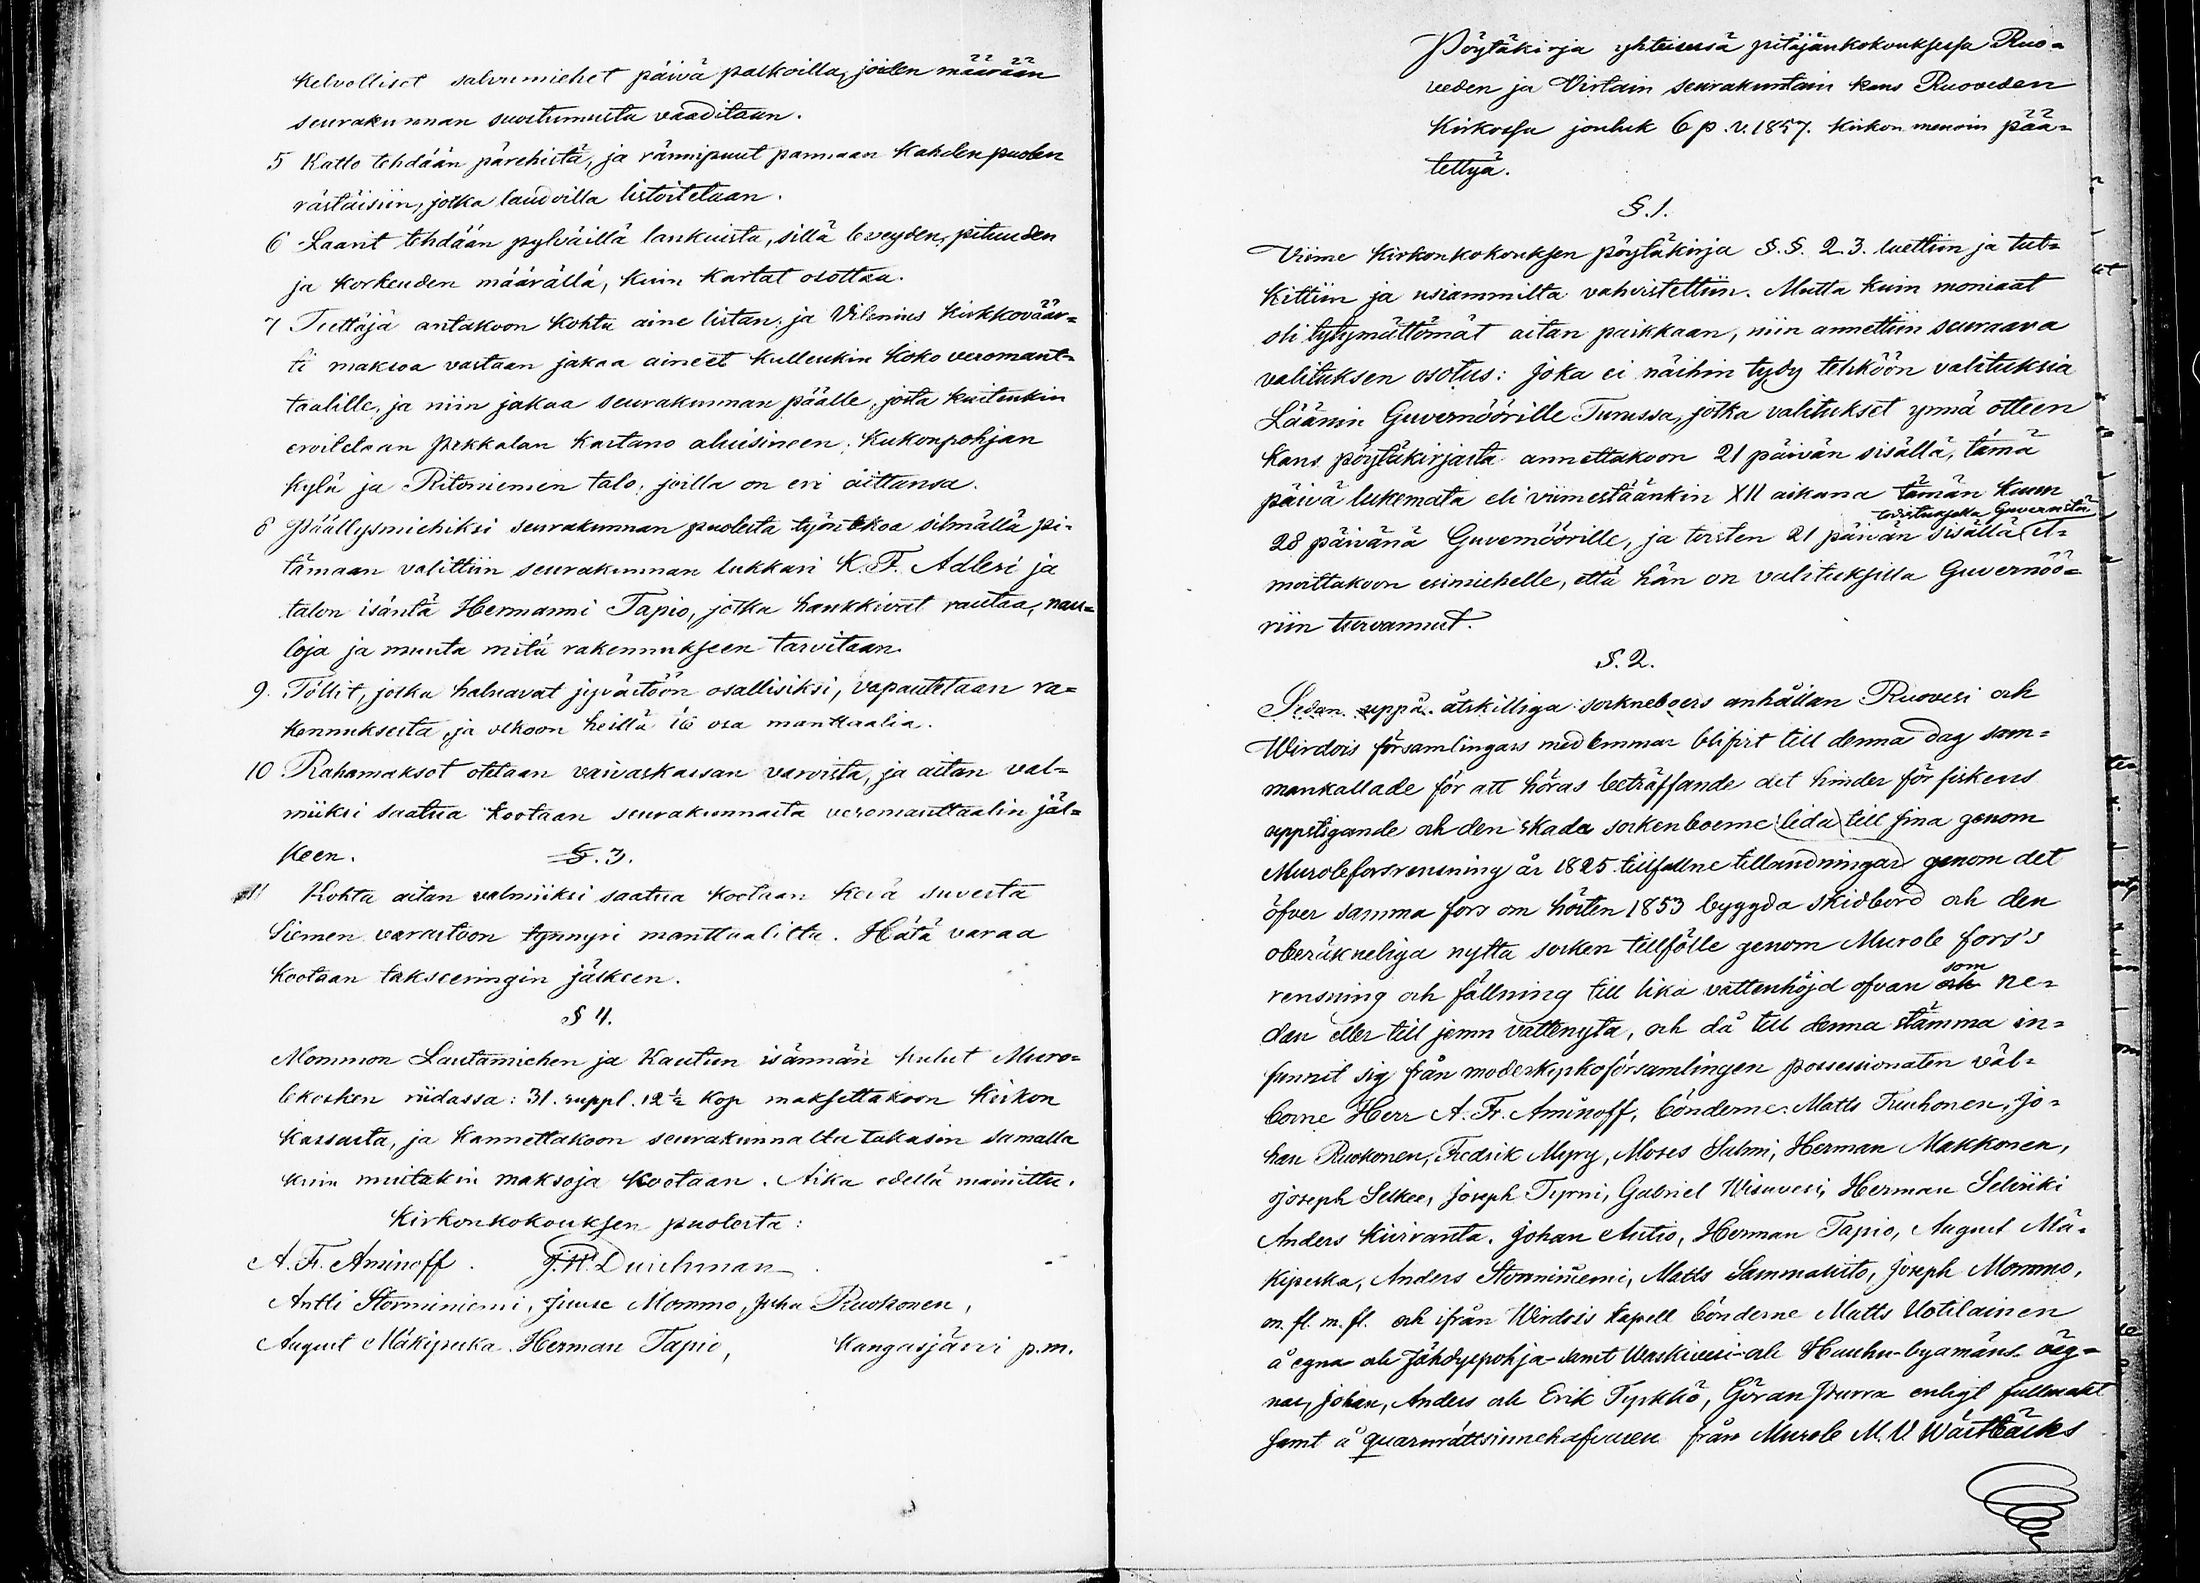 kelvolliset salvumiehet päivä palkoilla, joiden määrään
seurakunnan suostumusta vaaditaan.
5 Katto tehdään pärehistä, ja rännipuut pannaan kahden puolen
rästäisiin, jotka laudoilla listoitetaan.
6 Laarit tehdään pylväillä lankuista, sillä leveyden, pituuden
ja korkeuden määrällä, kuin kartat osottaa.
7 Teettäjä antakoon kohta aine listan, ja Vilenius kirkkoväär=
ti maksoa vastaan jakaa aineet kullenkin koko veromant=
taalille, ja niin jakaa seurakunnan päälle, josta kuitenkin
eroitetaan Pekkalan kartano aluisineen, Kukonpohjan
kylä ja Ritoniemen talo, joilla on eri aittansa.
8 Päällysmiehiksi seurakunnan puolesta työn tekoa silmällä pi=
tämään valittiin seurakunnan lukkari K. F. Adleri ja
talon isäntä Hermanni Tapio, jotka hankkivat rautaa, nau=
loja ja muuta mitä rakennukseen tarvitaan.
9. Töllit, jotka haluavat jyvästöön osallisiksi, vapautetaan ra=
kennuksesta, ja olkoon heillä 16 osa manttaalia.
10 Rahamaksot otetaan vaivaskassan varoista, ja aitan val=
miiksi saatua kootaan seurakunnasta veromanttaalin jäl=
keen. §. 3.
11 Kohta aitan valmiiksi saatua kootaan kesä suvesta
Siemen varastoon tynnyri manttaalilta. Hätä varaa
kootaan takseeringin jälkeen.
§ 4.
Mommon Lautamiehen ja Kautun isännän kulut Muro=
lekosken riidassa: 31. ruppl. 12 ½ kop maksettakoon kirkon
kassasta, ja kannettakoon seurakunnalta takasin samalla
kuin muitakin maksoja kootaan. Aika edellä mainittu.
Kirkonkokouksen puolesta:
A. F. Aminoff. J. W. Durchman
Antti Storminiemi, Juuse Mommo, Juha Ruokonen,
August Mäkipeska. Herman Tapio, Kangasjärvi p.m.
Pöytäkirja yhteisessä pitäjänkokouksessa Ruo=
veden ja Virtain seurakuntain kans Ruoveden
Kirkossa jouluk 6 p. v. 1857. kirkon menoin pää=
tettyä.
§. 1.
Viime kirkonkokouksen pöytäkirja §. §. 2. 3. luettiin ja tut=
kittiin ja usiammilta vahvistettiin. Mutta kuin moniaat
oli tytymättömät aitan paikkaan, niin annettiin seuraava
valituksen osotus: joka ei näihin tydy tehköön valituksia
Läänin Guvernöörille Turussa, jotka valitukset ynnä otteen
kans pöytäkirjasta annettakoon 21 päivän sisällä, tämä
päivä lukemata eli viimestäänkin XII aikana tämän kuun
28 päivänä Guvernöörille, ja toisten 21 päivän sisällä
todistuksella Guvern:stä
il=
moittakoon esimiehelle, että hän on valituksilla Guvernöö=
riin turvannut.
§. 2.
Sedan uppå åtskilliga sockneboers anhållan Ruovesi och
Wirdois församlingars medlemmar blifvit till denna dag sam=
mankallade för att höras beträffande det hinder för fiskens
uppstigande och den skada sockenboerne lida till sina genom
Muroleforsrensning år 1825 tillfallne tillandningar genom det
öfver samma fors om hösten 1853 byggda skidbord och den
oberäkneliga nytta socken tillfölle genom Murole fors's
rensning och fällning till lika vattenhöjd ofvan som ne=
dan eller till jemn vattenyta, och då till denna stämma in=
funnit sig från moderkyrkoförsamlingen possessionaten väl=
borne Herr A. Fr. Aminoff, bönderne Matts Truhonen, Jo=
han Ruokonen, Fredrik Myry, Moses Salmi, Herman Makkonen,
Joseph Selkee, Joseph Tyrni, Gabriel Wisuvesi, Herman Seliniki
Anders Kiirvanta, Johan Autio, Herman Tapio, August Mä=
kipeska, Anders Storminiemi, Matts Sammalisto, Joseph Mommo,
m. fl. m. fl. och ifrån Wirdois kapell bönderne Matts Uotilainen
å egna och Jähdyspohja- samt Waskivesi- och Hauhu-byamäns väg=
nar, Johan, Anders och Erik Tyrkkö, Göran Purra enligt fullmakt
samt å qvarnrättsinnehafvaren från Murole M. V. Wästbäcks